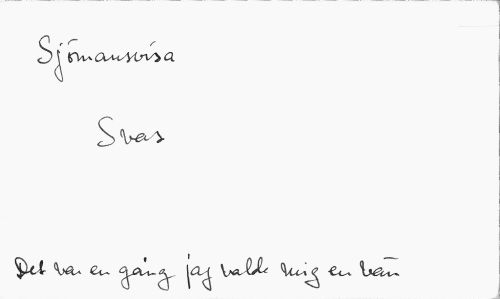 Sjömansvisa
Svas
Det var en gång jag valde mig en vän